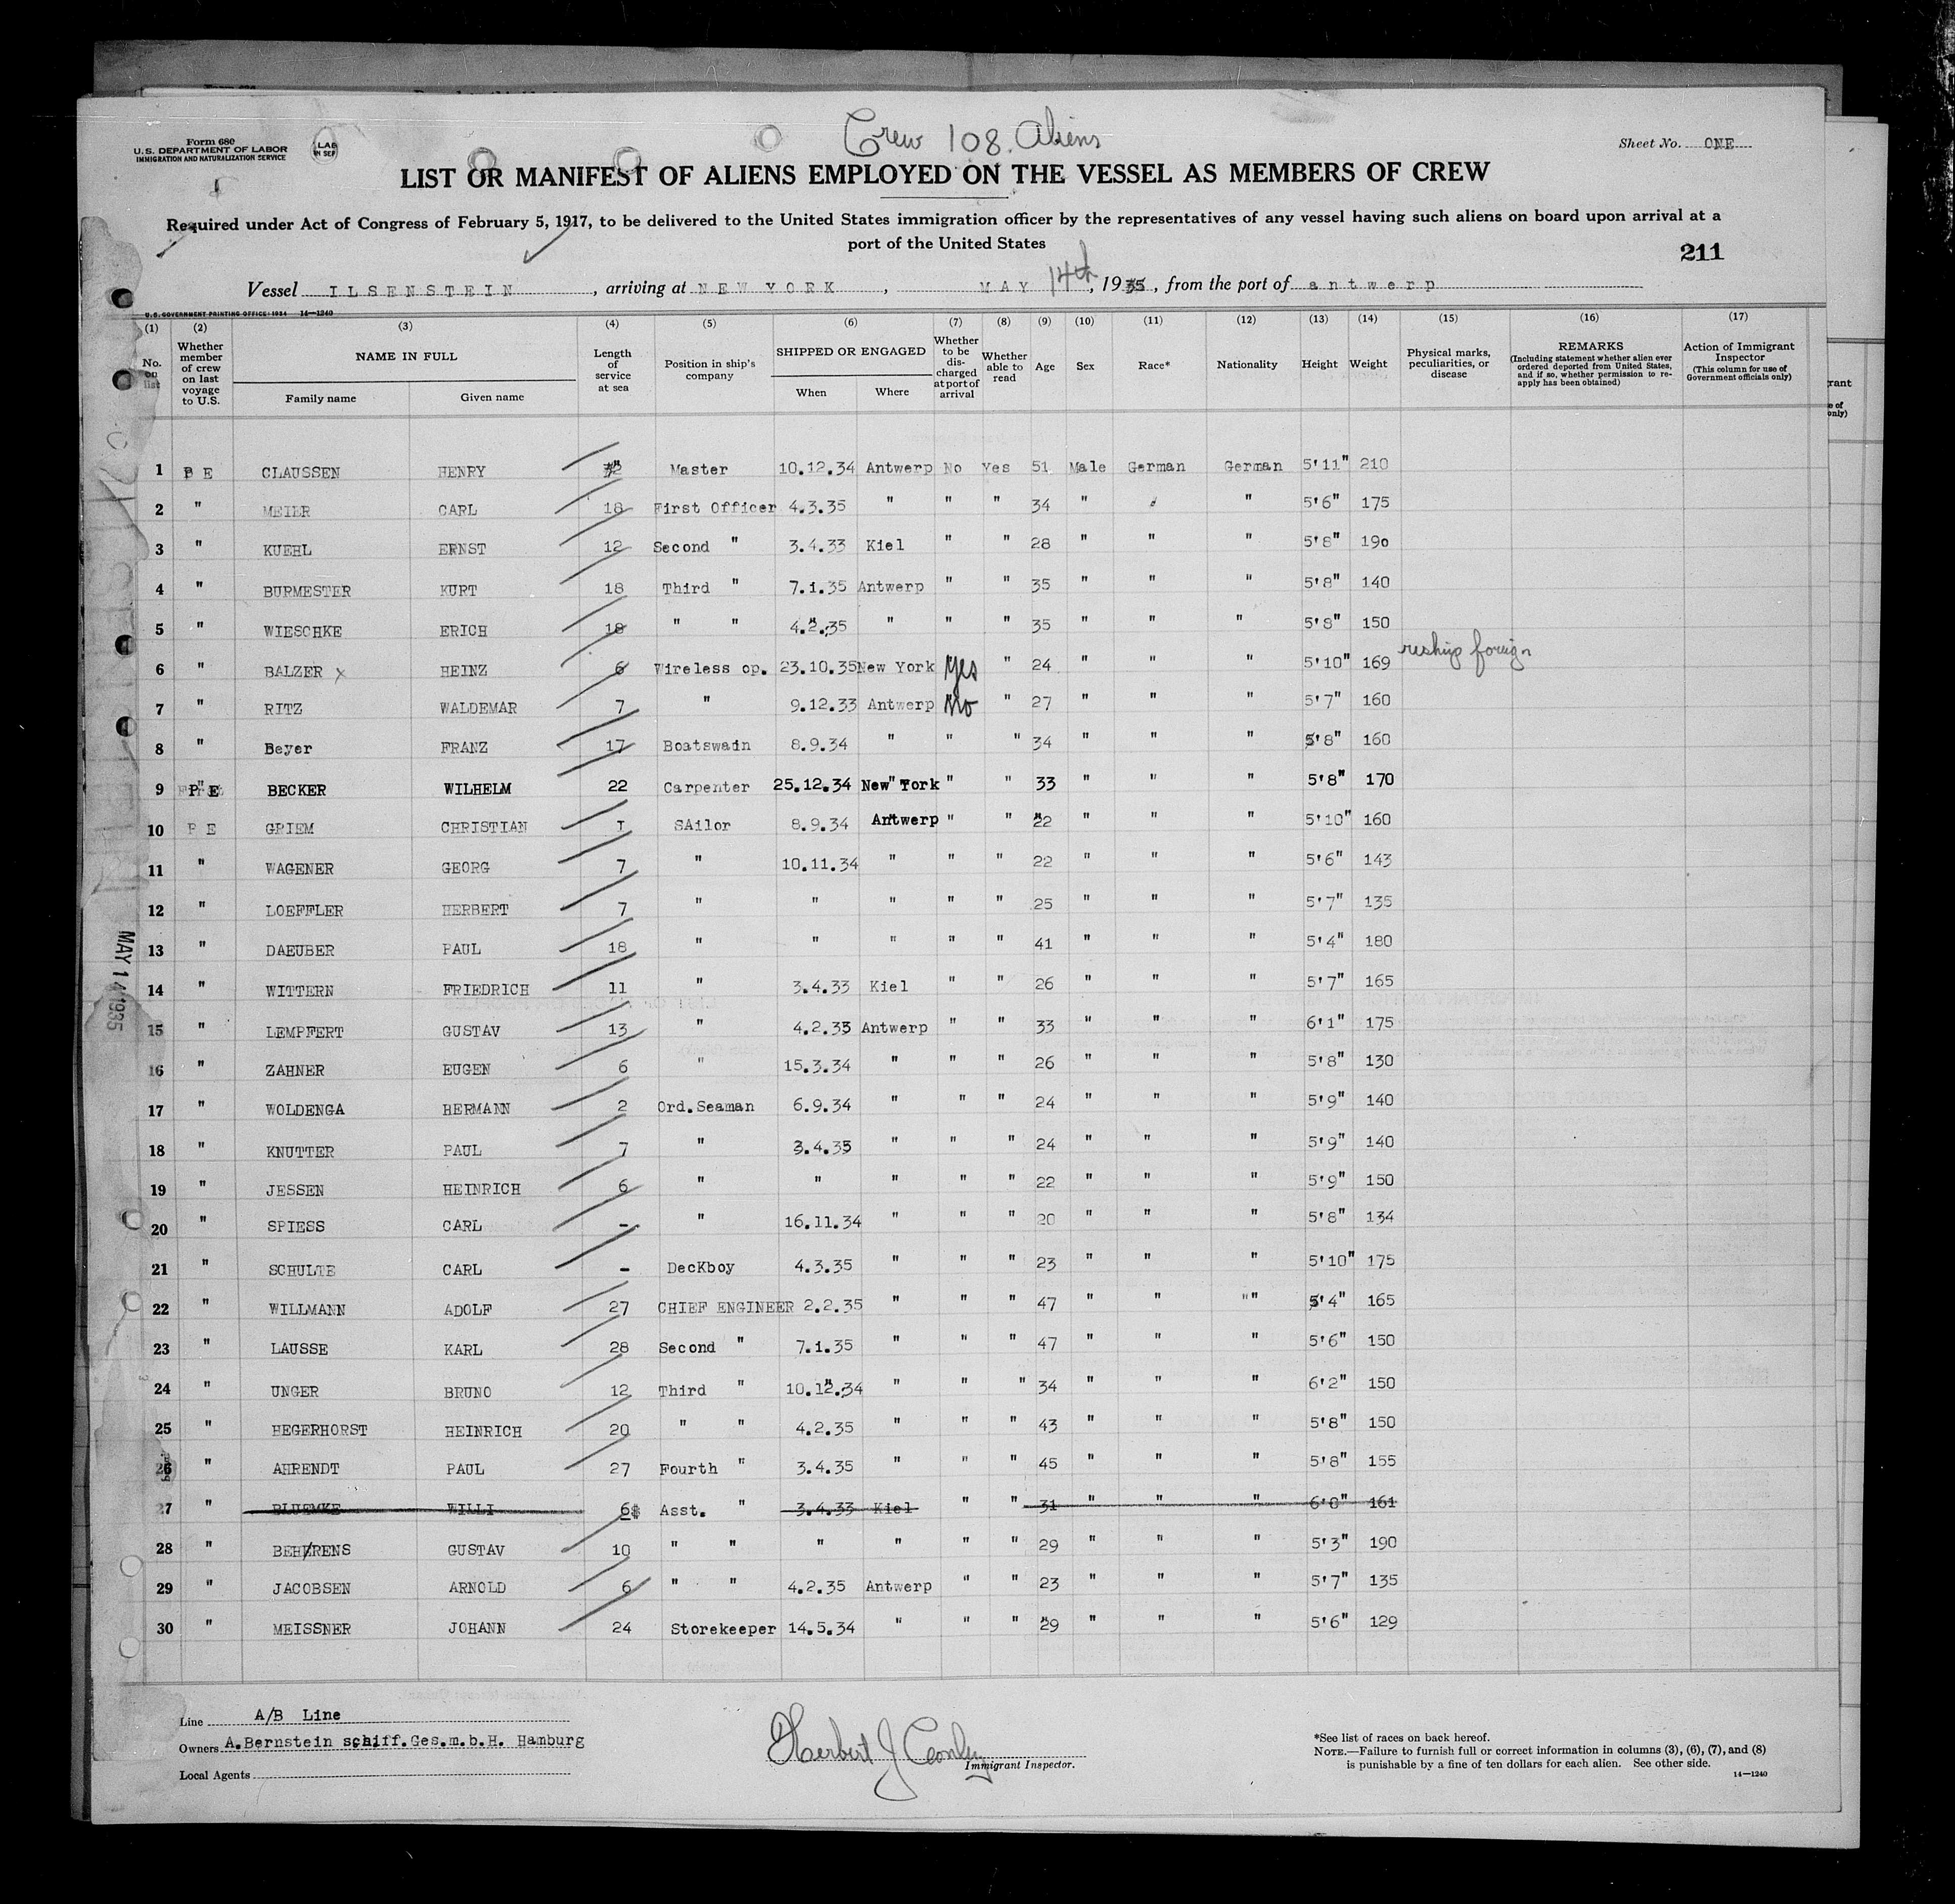 Crew 108 Aliens
Form 680
U. S. DEPARTMENT OF LABOR
IMMIGRATION AND NATURALIZATION SERVICE
Sheet No. ONE
LIST OR MANIFEST OF ALIENS EMPLOYED ON THE VESSEL AS MEMBERS OF CREW
Required under Act of Congress of February 5, 1917, to be delivered to the United States immigration officer by the representatives of any vessel having such aliens on board upon arrival at a
port of the United States
211
Vessel ILSENSTEIN, arriving at NEW YORK, MAY 14th, 1935, from the port of antwerp
U. S. GOVERNMENT PRINTING OFFICE: 1934 14—1240
(1) (2) (3) (4) (5) (6) (7) (8) (9) (10) (11) (12) (13) (14) (15) (16) (17)
No. on list
Whether member of crew on last voyage to U.S.
NAME IN FULL
Family name
Given name
Length of service at sea
Position in ship's company
SHIPPED OR ENGAGED
When
Where
Whether to be discharged at port of arrival
Whether able to read
Age
Sex
Race*
Nationality
Height
Weight
Physical marks, peculiarities, or disease
REMARKS
(Including statement whether alien ever ordered deported from United States, and if so, whether permission to reapply has been obtained)
Action of Immigrant Inspector
(This column for use of Government officials only)
1 P E CLAUSSEN HENRY Master 10.12.34 Antwerp No Yes 51 Male German German 5'11" 210
2 " MEIER CARL 18 First Officer 4.3.35 " " " 34 " " " 5'6" 175
3 " KUEHL ERNST 12 Second " 3.4.33 Kiel " " 28 " " " 5'8" 190
4 " BURMESTER KURT 18 Third " 7.1.35 Antwerp " " 35 " " " 5'8" 140
5 " WIESCHKE ERICH 18 " " 4.2.35 " " " 35 " " " 5'8" 150
6 " BALZER x HEINZ 6 Wireless op. 23.10.35 New York yes " 24 " " " 5'10" 169 reship foreign
7 " RITZ WALDEMAR 7 " 9.12.33 Antwerp No " 27 " " " 5'7" 160
8 " Beyer FRANZ 17 Boatswain 8.9.34 " " " 34 " " " 5'8" 160
9 P E BECKER WILHELM 22 Carpenter 25.12.34 New York " " 33 " " " 5'8" 170
10 P E GRIEM CHRISTIAN SAilor 8.9.34 Antwerp " " 22 " " " 5'10" 160
11 " WAGENER GEORG 7 " 10.11.34 " " " 22 " " " 5'6" 143
12 " LOEFFLER HERBERT 7 " " " " " 25 " " " 5'7" 135
13 " DAEUBER PAUL 18 " " " " " 41 " " " 5'4" 180
14 " WITTERN FRIEDRICH 11 " 3.4.33 Kiel " " 26 " " " 5'7" 165
15 " LEMPFERT GUSTAV 13 " 4.2.35 Antwerp " " 33 " " " 6'1" 175
16 " ZAHNER EUGEN 6 " 15.3.34 " " " 26 " " " 5'8" 130
17 " WOLDENGA HERMANN 2 Ord.Seaman 6.9.34 " " " 24 " " " 5'9" 140
18 " KNUTTER PAUL 7 " 3.4.35 " " " 24 " " " 5'9" 140
19 " JESSEN HEINRICH 6 " " " " " 22 " " " 5'9" 150
20 " SPIESS CARL - " 16.11.34 " " " 20 " " " 5'8" 134
21 " SCHULTE CARL - DecKboy 4.3.35 " " " 23 " " " 5'10" 175
22 " WILLMANN ADOLF 27 CHIEF ENGINEER 2.2.35 " " " 47 " " "" 5'4" 165
23 " LAUSSE KARL 28 Second " 7.1.35 " " " 47 " " " 5'6" 150
24 " UNGER BRUNO 12 Third " 10.12.34 " " " 34 " " " 6'2" 150
25 " HEGERHORST HEINRICH 20 " " 4.2.35 " " " 43 " " " 5'8" 150
26 " AHRENDT PAUL 27 Fourth " 3.4.35 " " " 45 " " " 5'8" 155
27 " BLUEMKE WILLI 6 Asst. " 3.4.33 Kiel " " 31 " " " 6'0" 161
28 " BEHRENS GUSTAV 10 " " " " " " 29 " " " 5'3" 190
29 " JACOBSEN ARNOLD 6 " " 4.2.35 Antwerp " " 23 " " " 5'7" 135
30 " MEISSNER JOHANN 24 Storekeeper 14.5.34 " " " 29 " " " 5'6" 129
MAY 14 1935
Line A/B Line
Owners A.Bernstein schiff.Ges.m.b.H. Hamburg
Local Agents
Herbert J Conley
Immigrant Inspector.
*See list of races on back hereof.
NOTE.—Failure to furnish full or correct information in columns (3), (6), (7), and (8)
is punishable by a fine of ten dollars for each alien. See other side.
14—1240